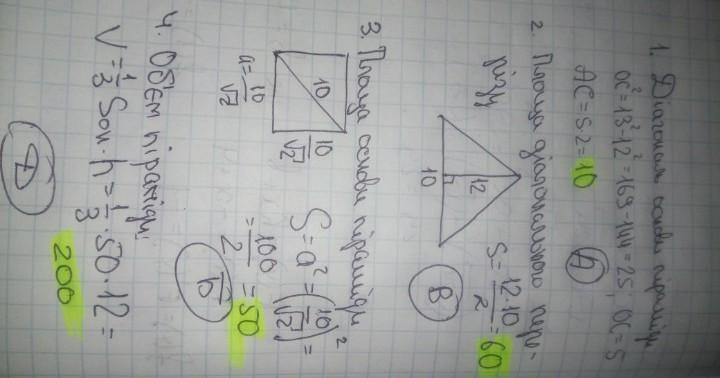 1. Діагональ основи піраміди
OC²=13²-12²=169-144=25; OC=5
AC=5·2=10
А
2. Площа діагонального пере-
різу
12
10
S=12·10/2=60
В
3. Площа основи піраміди
10
10/√2
a=10/√2
S=a²=(10/√2)²=
=100/2=50
Б
4. Об'єм піраміди:
V=1/3 Sосн·h=1/3·50·12=
200
Д